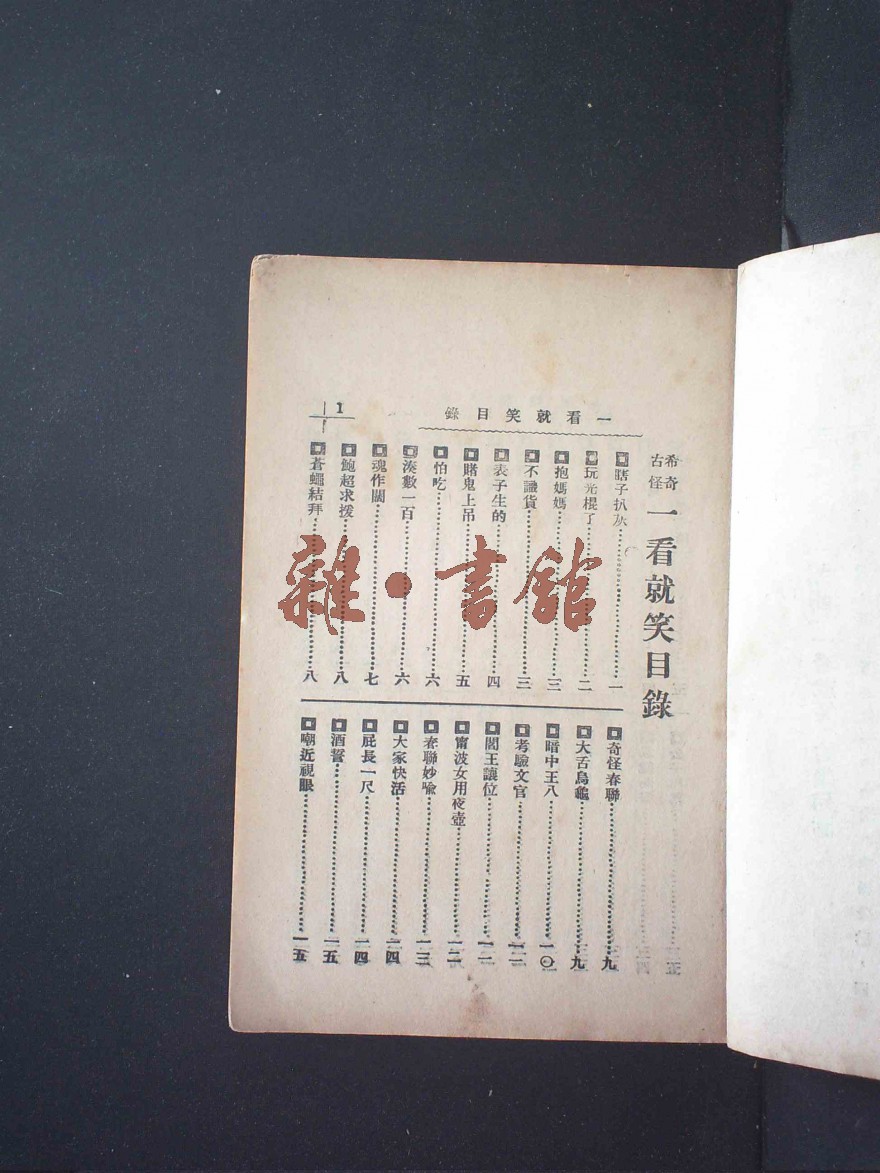 一看就笑目錄
1
希奇
古怪
一看就笑目錄
瞎子扒灰……一
玩光棍了……二
抱媽媽……三
不識貨……三
表子生的……四
賭鬼上吊……五
怕吃……六
湊數一百……六
魂作鬧……七
鮑超求援……八
蒼蠅結拜……八
奇怪春聯……九
大舌烏龜……九
暗中王八……一〇
考驗文官……一一
閻王讓位……一二
甯波女用夜壺……一二
春聯妙喻……一三
大家快活……一四
屁長一尺……一四
酒誓……一五
嘲近視眼……一五
雜·書館